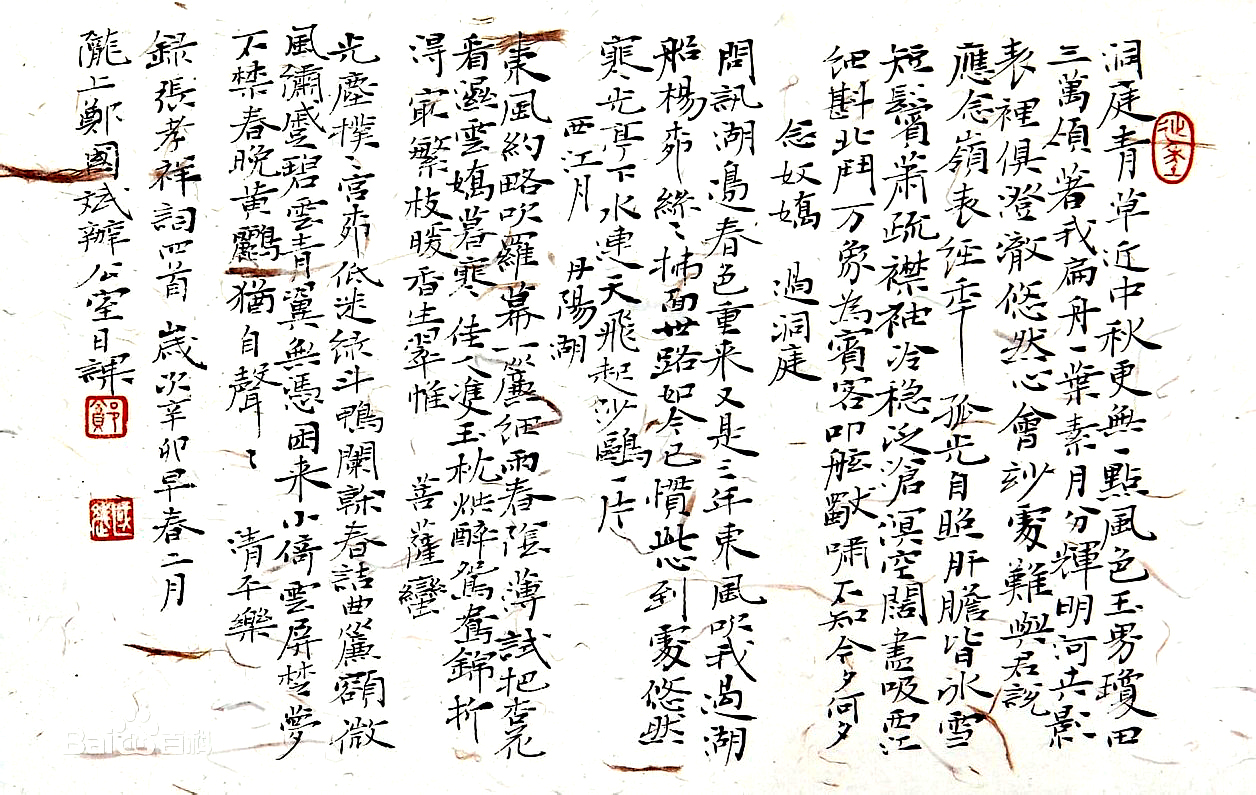 洞庭青草近中秋更無一點風色玉界瓊田
三萬頃著我扁舟一葉素月分輝明河共影
表裡俱澄澈悠然心會妙處難與君説
應念嶺表經年 孤光自照肝膽皆冰雪
短鬢蕭疏襟袖冷穩泛滄溟空闊盡吸西江
細斟北鬥万象為賓客叩舷獨嘯不知今夕何夕
念奴嬌 過洞庭
問訊湖邊春色重来又是三年東風吹我過湖
船楊柳絲〻拂面世路如今已慣此心到處悠然
寒光亭下水連天飛起沙鷗一片
西江月 丹陽湖
東風約略吹羅幕一簾細雨春陰薄試把杏花
看濕雲嬌暮寒佳人雙玉枕烘醉鴛鴦錦折
得最繁枝暖香生翠帷 菩薩蠻
光塵撲〻宮柳低迷緑斗鴨闌幹春詰曲簾額微
風繡蹙碧雲青翼無憑困来小倚雲屏楚夢
不禁春晚黄鸝猶自聲〻 清平樂
録張孝祥詞四首 歲次辛卯早春二月
隴上鄭國斌辦公室日課
Baidu百科